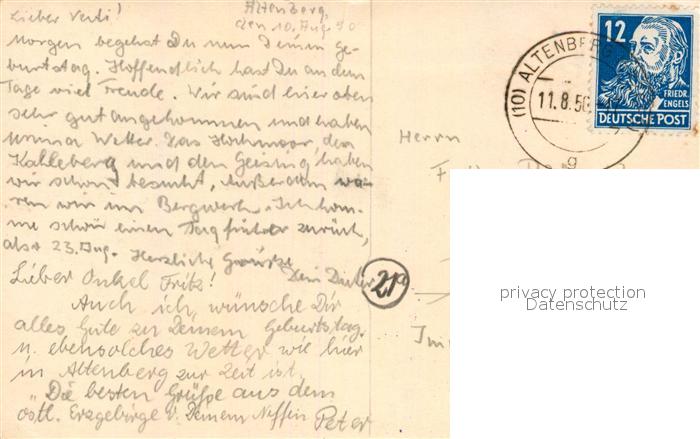 Lieber Verti!
Altenberg,
den 10. Aug. 50
Morgen begehst Du nun Deinen Ge-
burtstag. Hoffentlich hast Du an dem
Tage viel Freude. Wir sind hier oben
sehr gut angekommen und haben
prima Wetter. Das Hochmoor, den
Kahleberg und den Geising haben
wir schon besucht, Außerdem wa-
ren wir im Bergwerk. Ich kom-
me schon einen Tag früher zurück,
also 23. Aug. Herzliche Grüße
Dein Dieter
Lieber Onkel Fritz!
Auch ich wünsche Dir
alles Gute zu Deinem Geburtstag
u. ebensolches Wetter wie hier
in Altenberg zur Zeit ist.
"Die besten Grüße aus dem
östl. Erzgebirge v. Deinem Neffen
Peter
21a
12
FRIEDR.
ENGELS
DEUTSCHE POST
(10) ALTENBERG
11.8.50
g
Herrn
privacy protection
Datenschutz